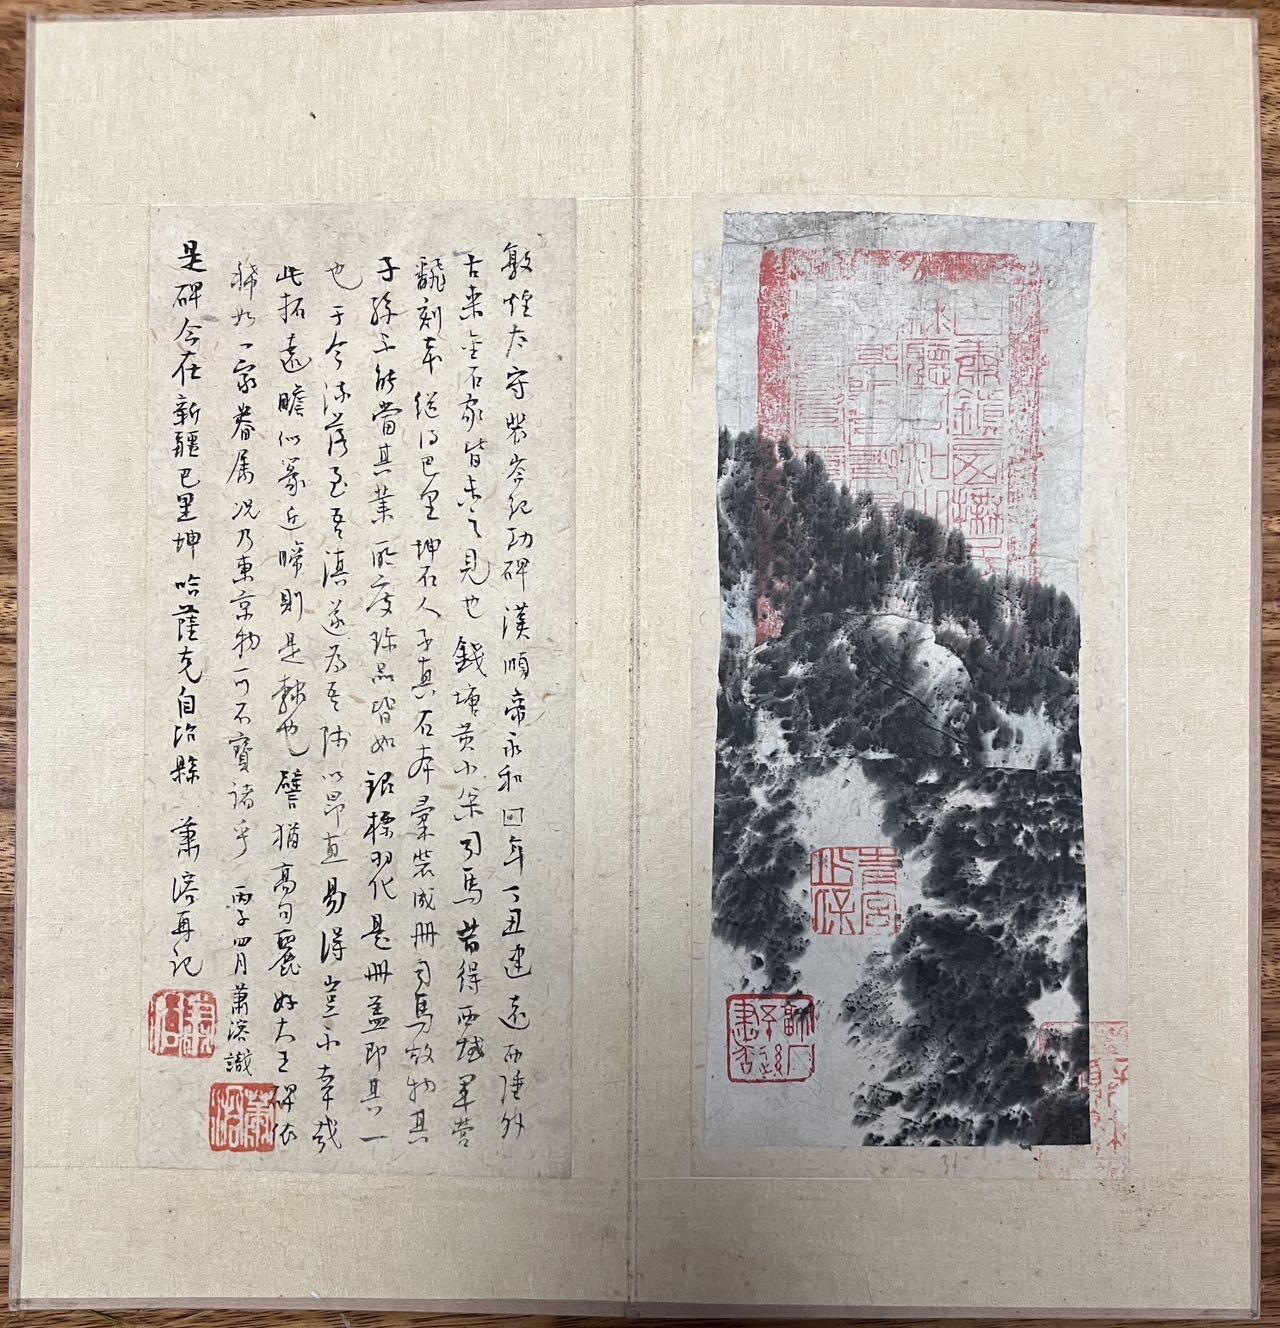 敦煌太守裴岑紀功碑漢順帝永和四年丁丑建遠西陲外
古来金石家皆未之見也錢塘黄小松司馬昔得西域軍營
翻刻本繼得巴里坤石人子真石本彙裝成冊司馬故物其
子孫不能當其業所度珍品皆如銀標羽化是冊蓋即其一
也于今流落至吾滇遂為吾師以昂直易得豈不幸哉
此拓遠瞻似篆近睇則是隸也譬猶高句麗好大王碑依
稀如一家眷属况乃東京物可不寶諸乎 丙子四月蕭溶識
是碑今在新疆巴里坤哈薩克自治縣 蕭溶再記
青宮
少保
31